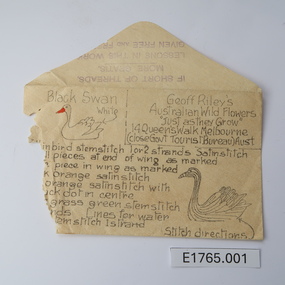 IF SHORT OF THREADS
MORE
LESSONS IN THIS WORK
GIVEN FREE
Black Swan
White
Geoff Riley's
Australian Wild Flowers
"Just as they Grow"
14 Queens Walk Melbourne
(close Govt Tourist Bureau) Aust
in bird stemstitch 1 or 2 strands Satinstitch
ll pieces at end of wing as marked
piece in wing as marked
k orange satinstitch
orange satinstitch with
ck dot in centre
grass green stemstitch
ds. Lines for water
emstitch 1 strand
Stitch directions
E1765.001